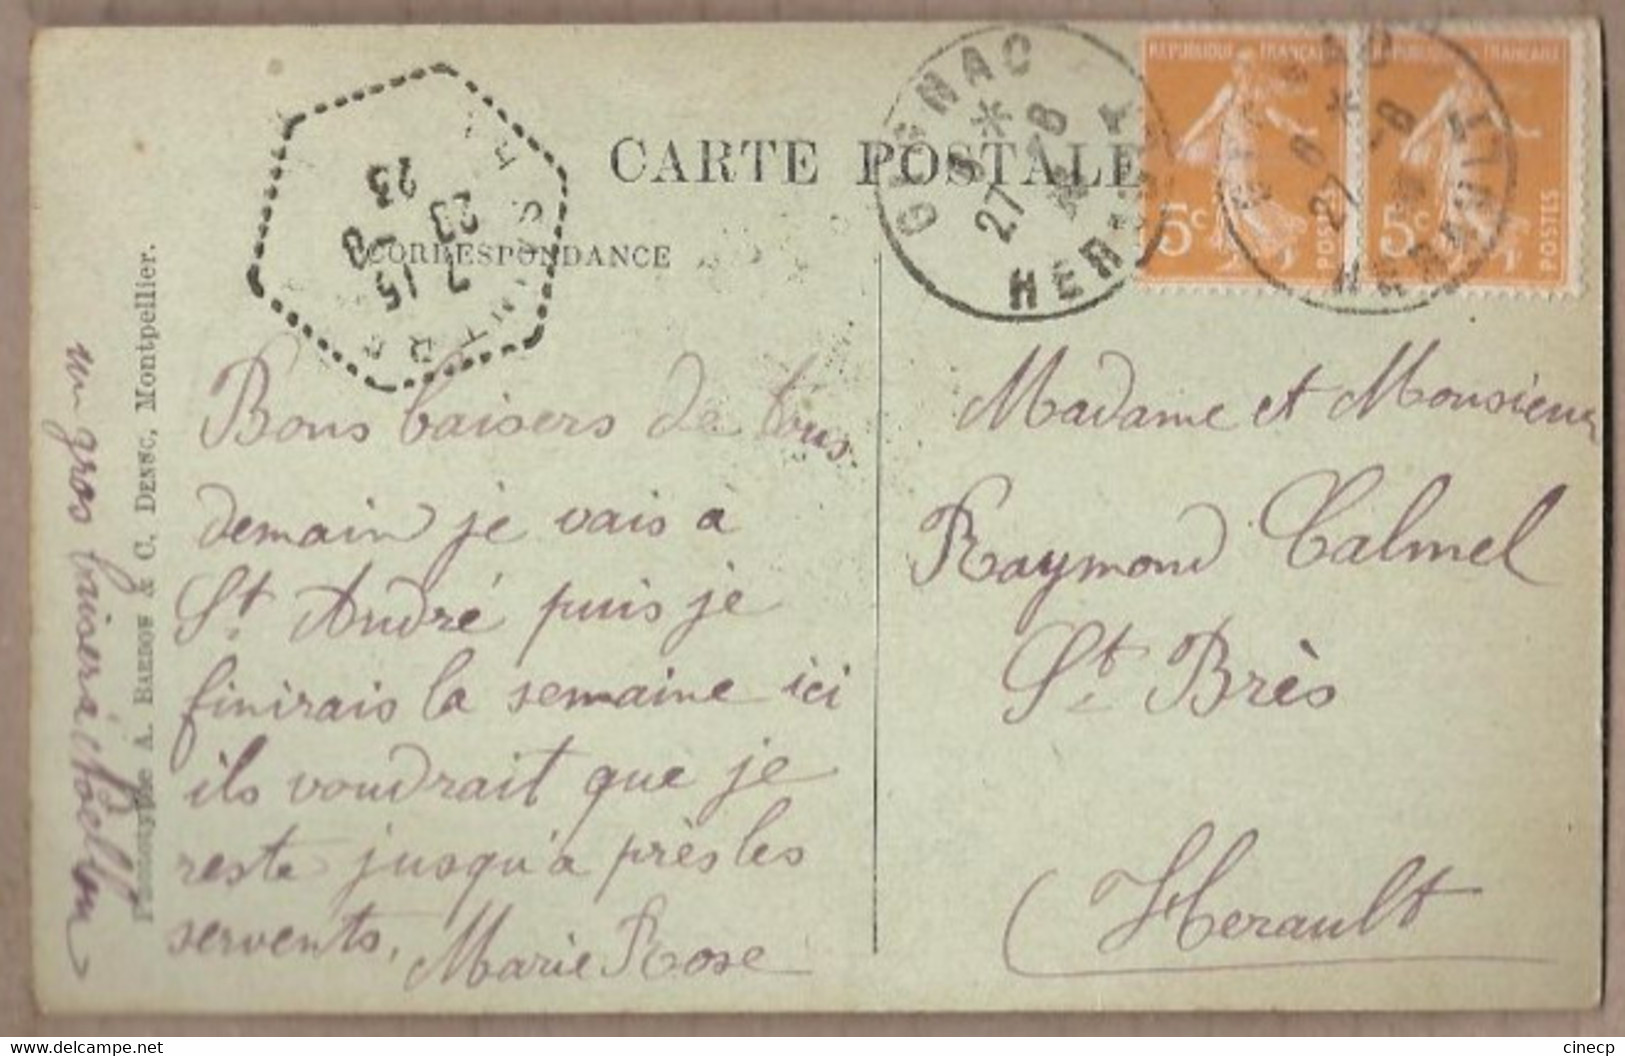 CARTE POSTALE
CORRESPONDANCE
REPUBLIQUE FRANÇAISE
5c POSTES
REPUBLIQUE FRANÇAISE
5c POSTES
GIGNAC
27 -8
HERAULT
27 -8
HERAULT
7 15
23 -8
23
SAINT
Bons baisers de tous.
demain je vais à
St André puis je
finirais la semaine ici
ils voudrait que je
reste jusqu'a près les
servents,
Marie Rose
un gros baiser à
Phototypie A. BARDOU & C. DENSC, Montpellier.
Madame et Monsieur
Raymond Calmel
St Brès
Herault
cinecp